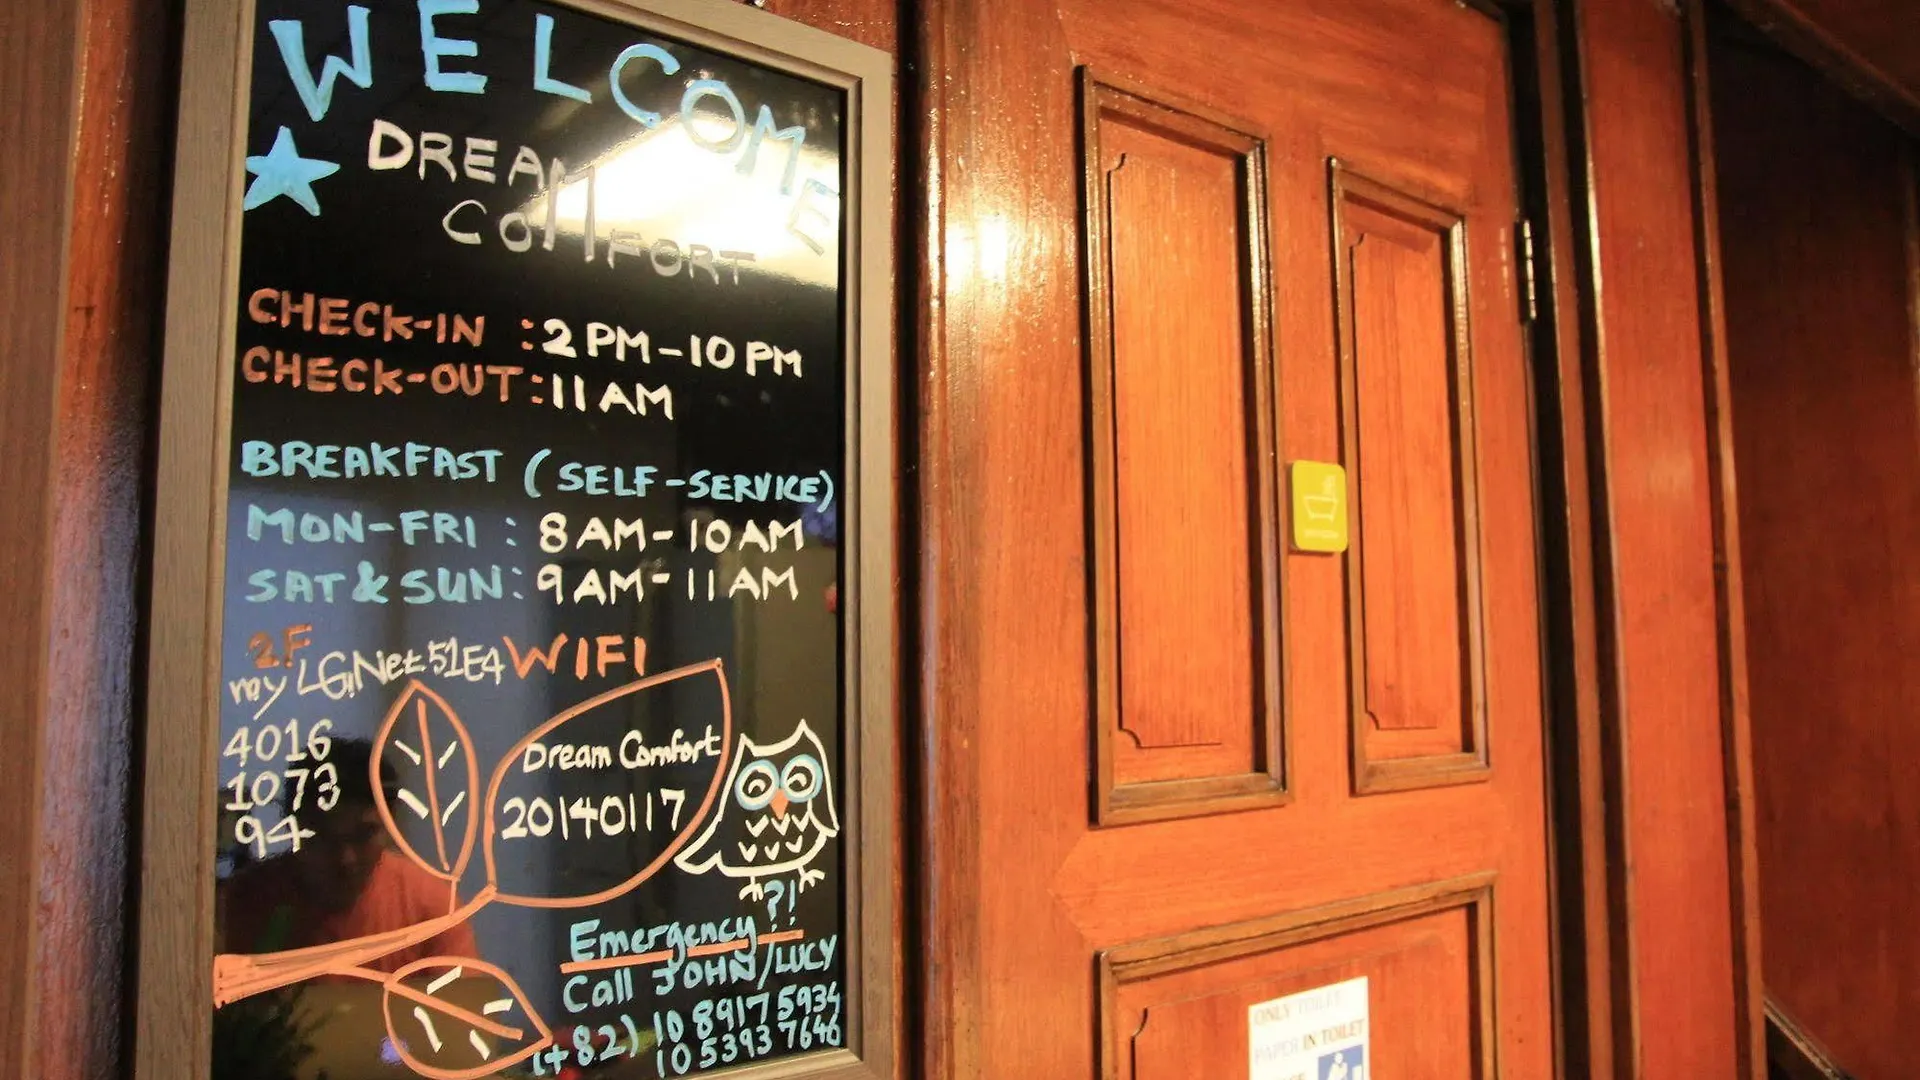 WELCOME
DREAM
COMFORT
CHECK-IN : 2 PM - 10 PM
CHECK-OUT : 11 AM
BREAKFAST (SELF-SERVICE)
MON-FRI : 8 AM - 10 AM
SAT & SUN : 9 AM - 11 AM
2F WIFI
myLGNet51E4
4016
1073
94
Dream Comfort
20140117
Emergency ?!
Call JOHN/LUCY
(+82) 10 8917 5934
10 5393 7646
ONLY TOILET
PAPER IN TOILET